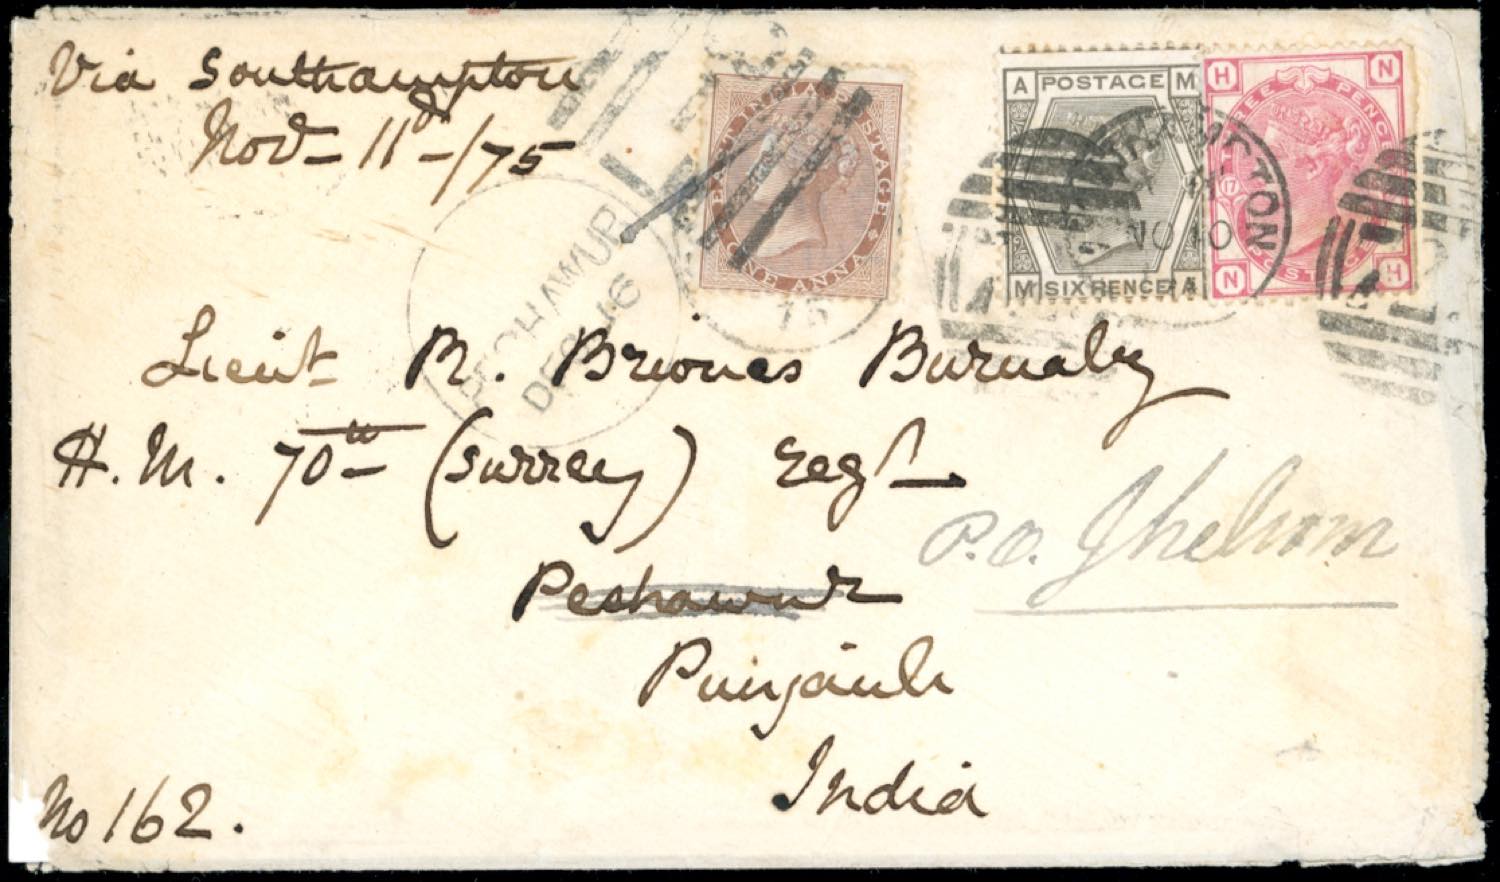 Via Southampton
Novr 11th /75
EAST INDIA POSTAGE
ONE ANNA
A POSTAGE M
M SIX PENCE A
H THREE PENCE N
17
N POSTAGE H
NO 10
PESHAWUR
DEC 16
75
Lieut R. Briones Burnaby
H. M. 70th (Surrey) regt
Peshawur
P.O. Jhelum
Punjaub
India
No 162.